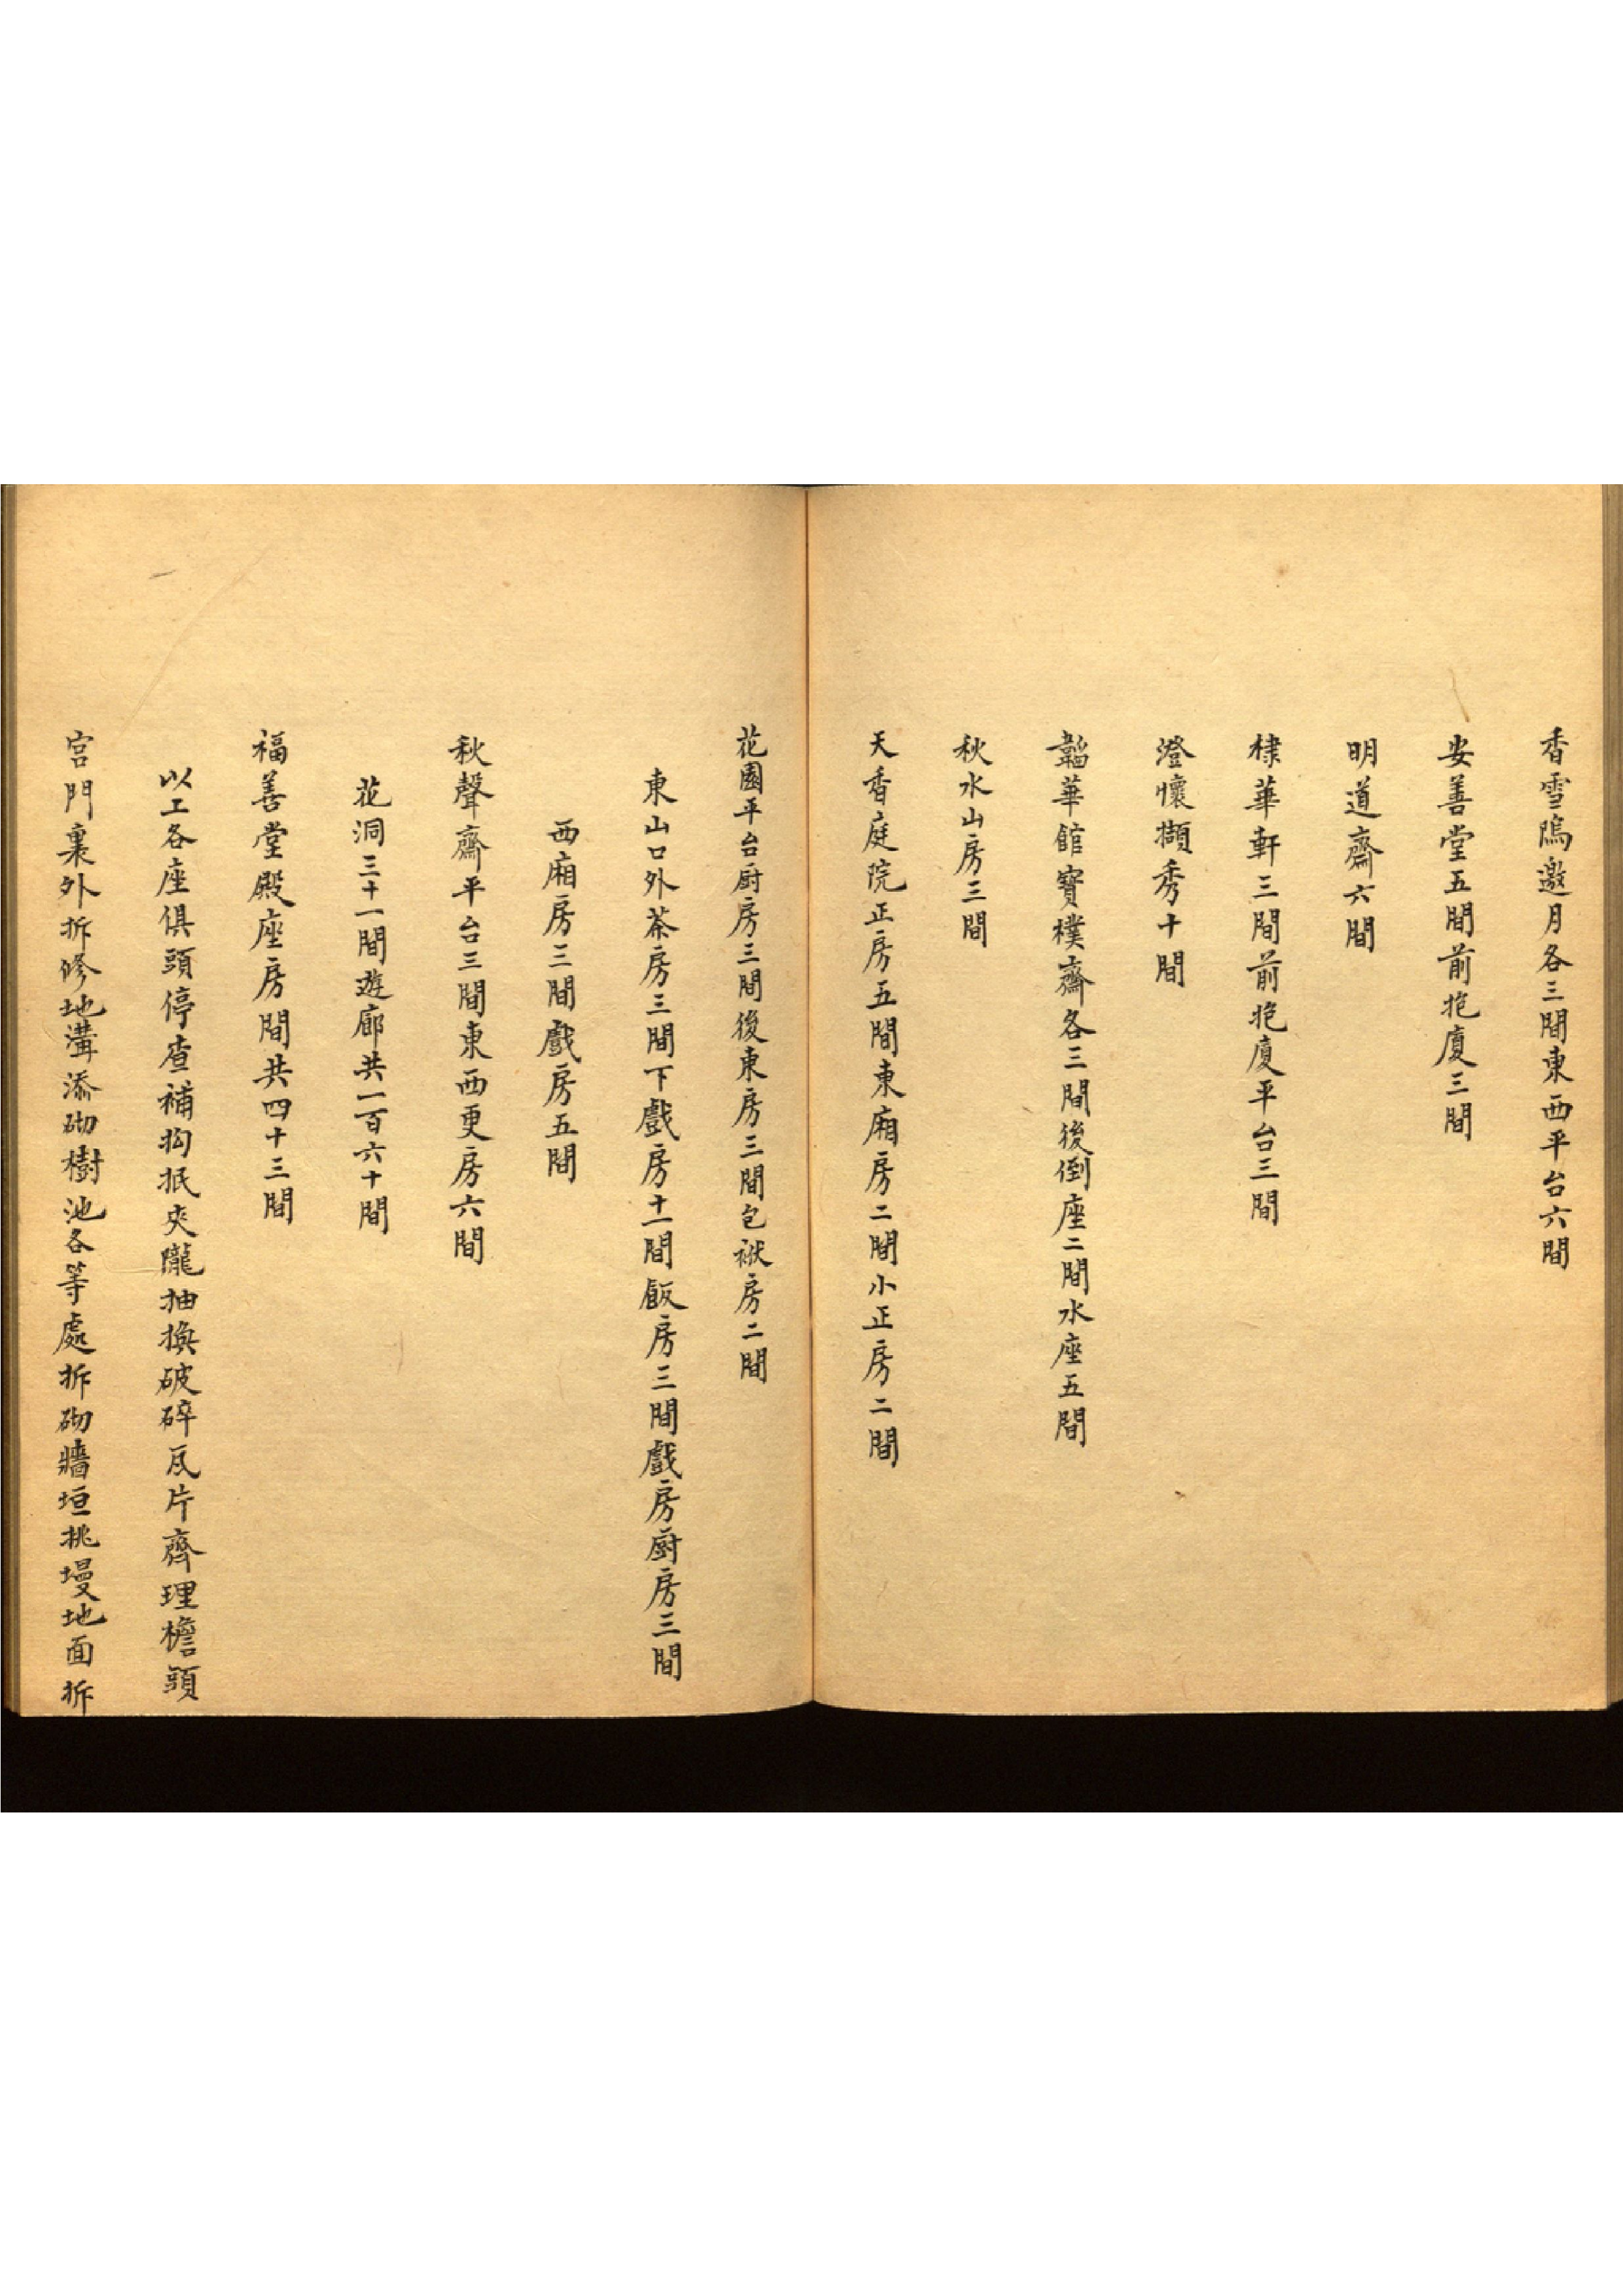 香雪隝邀月各三間東西平台六間
安善堂五間前抱廈三間
明道齋六間
棣華軒三間前抱廈平台三間
澄懷擷秀十間
韜華館寶樸齋各三間後倒座二間水座五間
秋水山房三間
天香庭院正房五間東廂房二間小正房二間
花園平台厨房三間後東房三間包袱房二間
東山口外茶房三間下戲房十一間飯房三間戲房厨房三間
西廂房三間戲房五間
秋聲齋平台三間東西更房六間
花洞三十一間遊廊共一百六十間
福善堂殿座房間共四十三間
以工各座俱頭停查補抅抿夾隴抽換破碎瓦片齊理檐頭
宮門裏外拆修地溝添砌樹池各等處拆砌牆垣挑墁地面拆